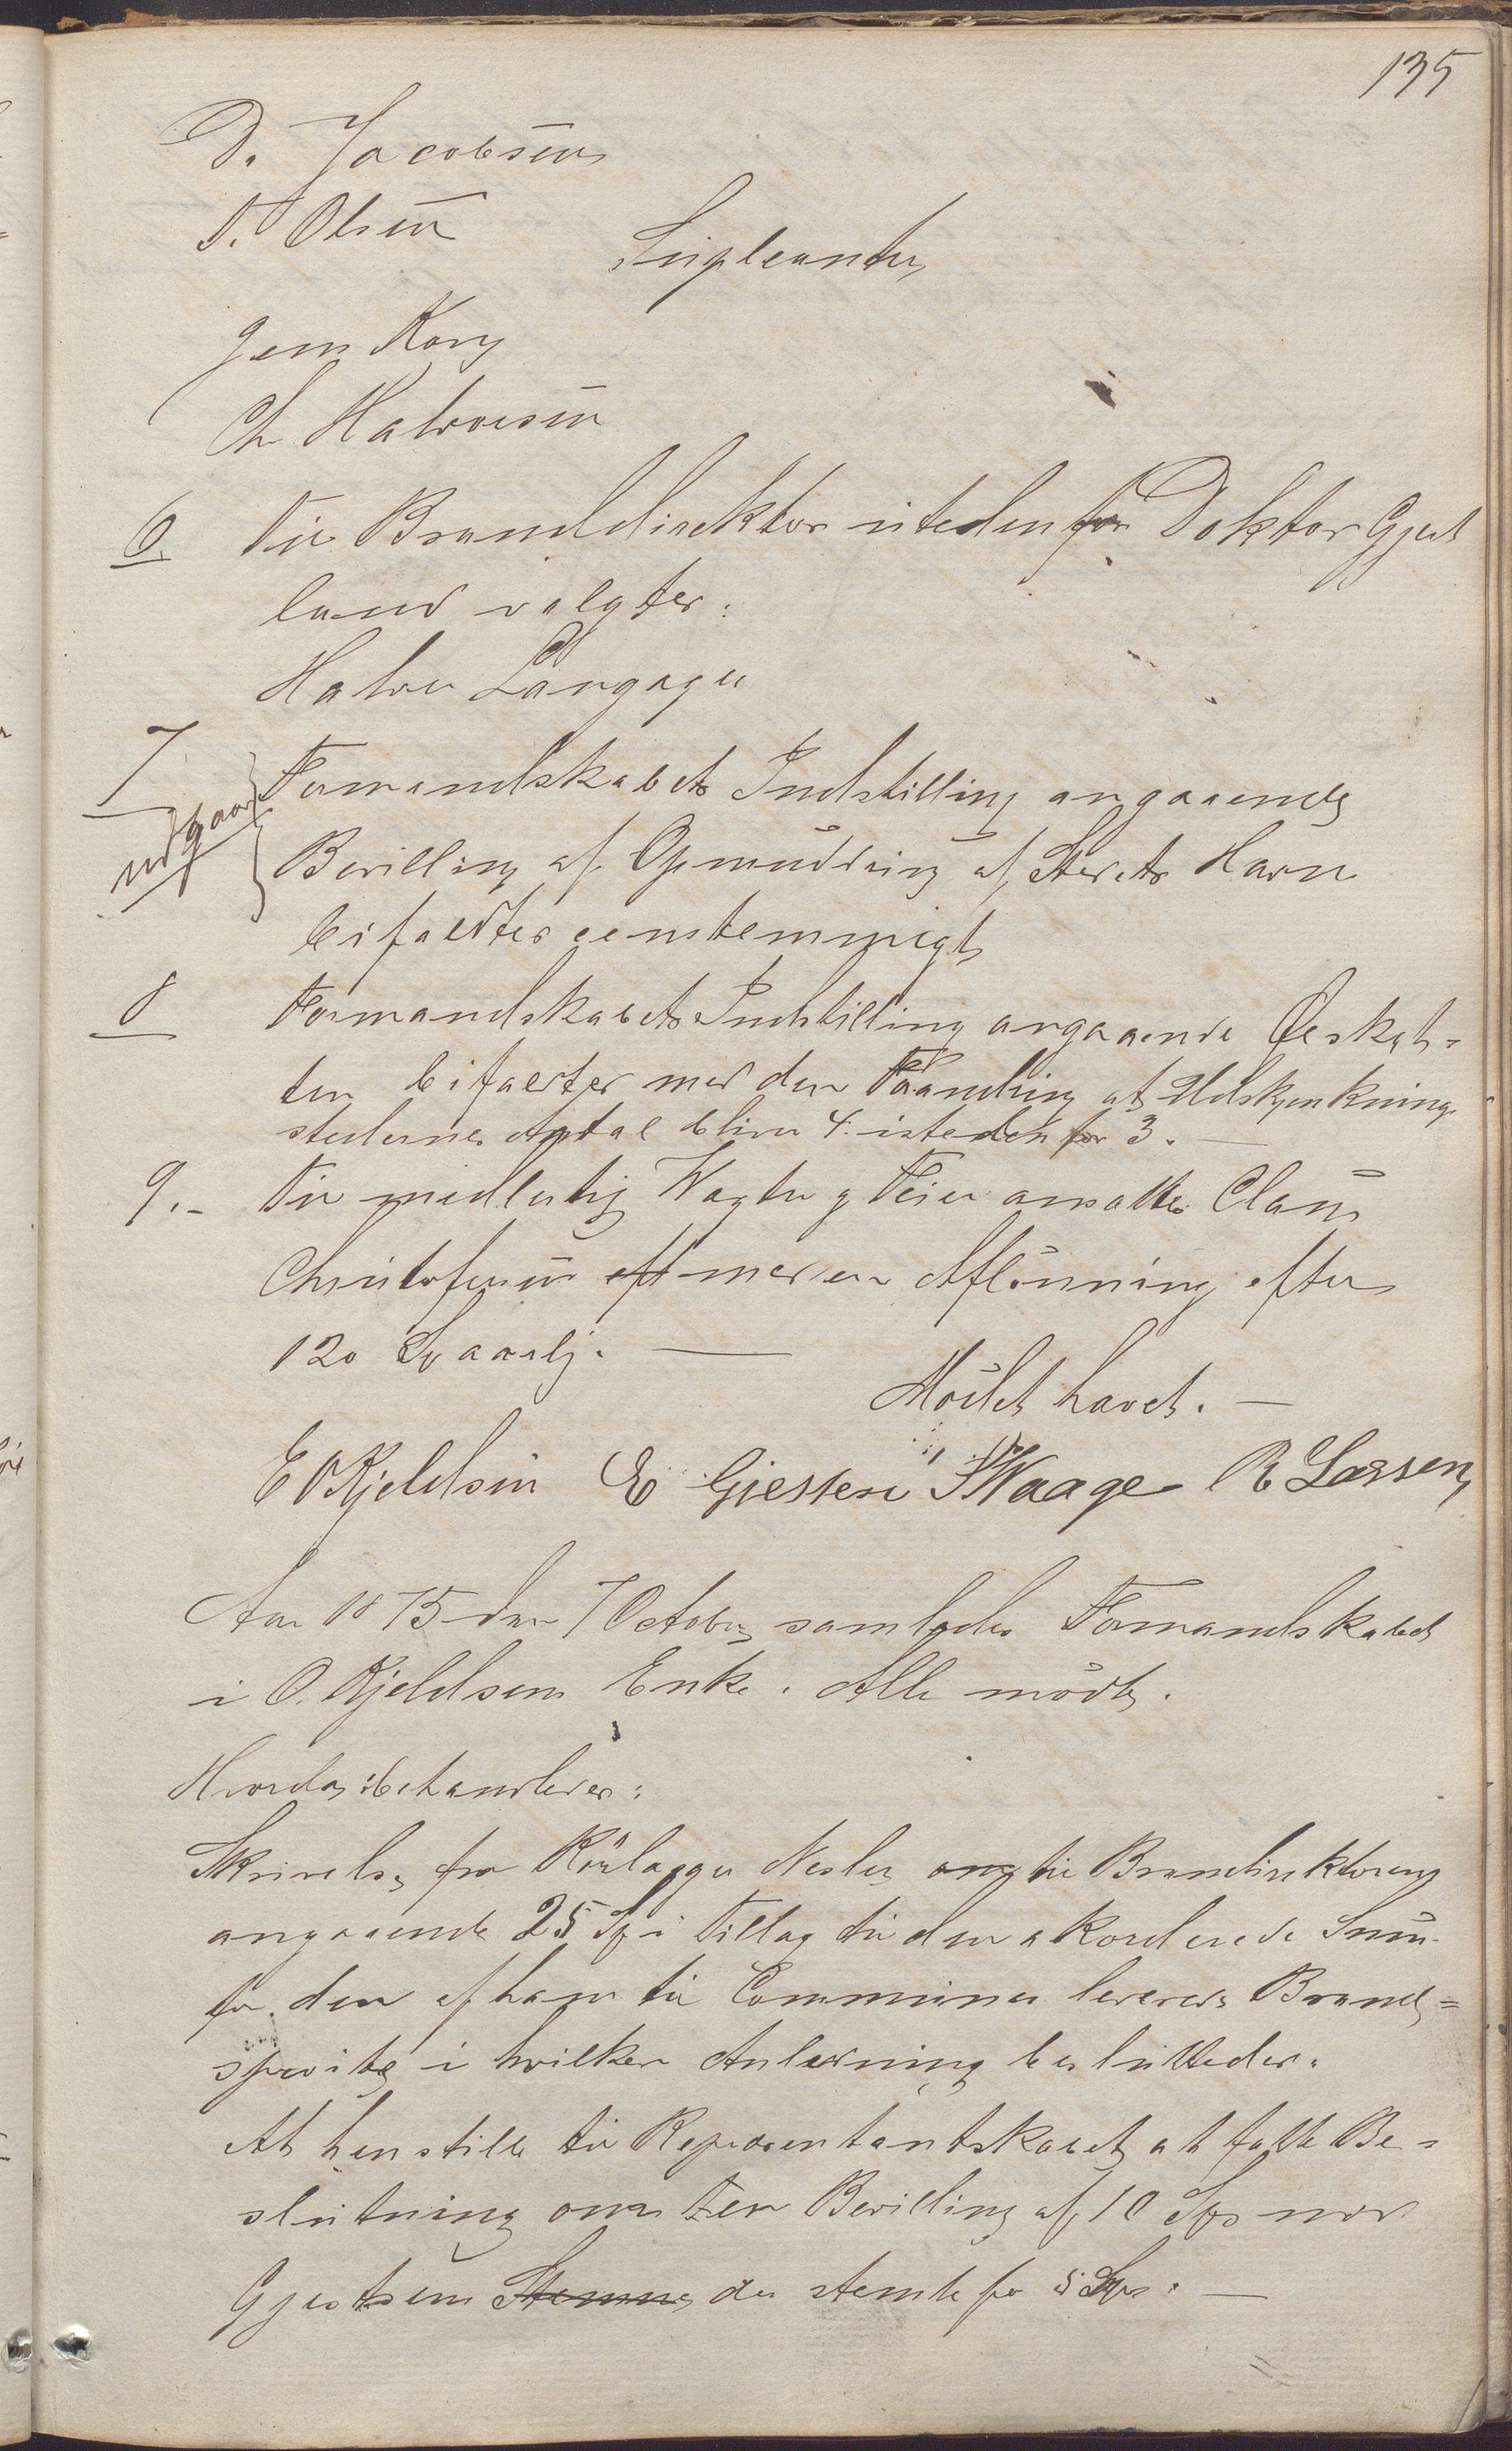 135
D. Jacobsen
T. Olsen
Supleanter
Jens Kory
Ch Halvorsen
6. Til Branddirektør istedenfor Doktor Gjest
land valgtes:
Halvor Langager
7. Formandskabets Indstilling angaaende
udgaar
Bevilling af Opmuddring af Stedets Havn
bifaldtes eenstemmigt
8 Formandskabets Indstilling angaaende Ølskat=
ten bifaldtes med den Forandring at Udskjenknings
stedernes Antal bliver 4 istedenfor 3. —
9. Til midlertidig Vægter og Feier ansattes Claus
Christofersen med en Aflønning efter
120 Spd aarlig. —
Mødet hævet. —
E Kjeldsen E Giestsen Waage R Larssen
Aar 1875 den 7 October samledes Formandskabet
i O. Kjeldsens Enke. Alle mødte.
Hvorda behandledes:
Skrivelse fra Rørlægger Nesler til Branddirektøren
angaaende 25 Spd i Tillæg til den akorderede Sum
for den af ham til Communen leverede Brand=
sprøite i hvilken Anledning besluttedes:
At henstille til Repræsentantskabet at fatte Be=
slutning om en Bevilling af 10 Spd mod
Gjestsen Stemme der stemte for 5 Spd. —